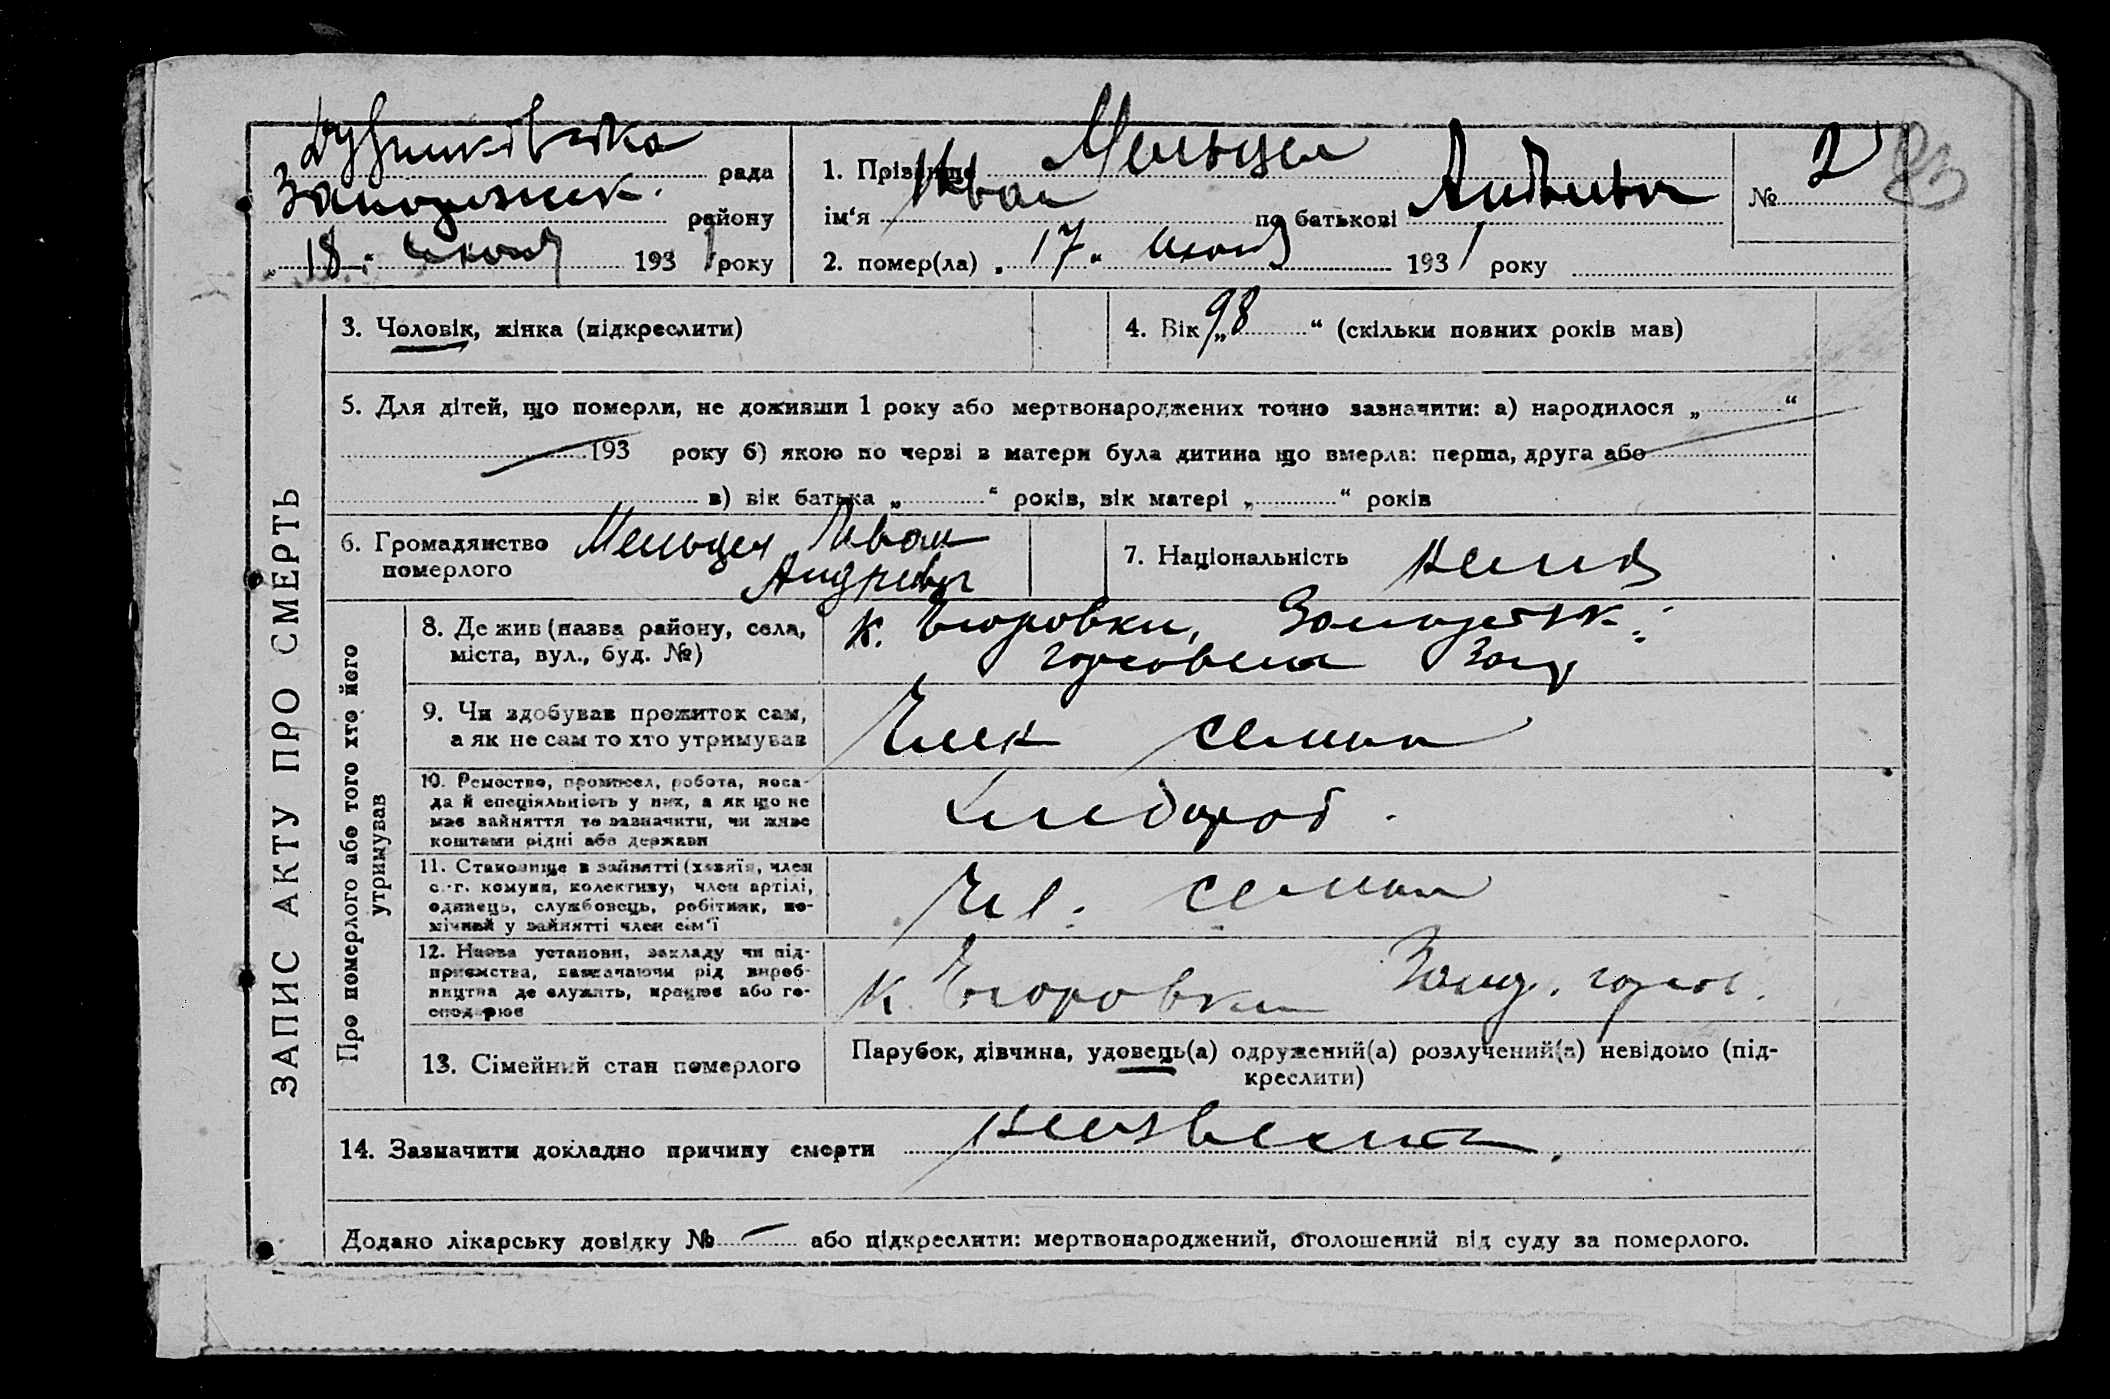 рада
району
„ 18 “ 1931 року
1. Прізвище Мельцел
ім‘я Иван по батькові
№ 2
2. помер(ла) „ 17 “ июня 1931 року
ЗАПИС АКТУ ПРО СМЕРТЬ
3. Чоловік, жінка (підкреслити)
4. Вік „ 98 “ (скільки повних років мав)
5. Для дітей, що померли, не доживши 1 року або мертвонароджених точно зазначити: а) народилося „ “
193 року б) якою по черві в матери була дитина що вмерла: перша, друга або
в) вік батька „ “ років, вік матері „ “ років
6. Громадянство Иван
померлого Андреевич
7. Національність
Про померлого або того хто його
утримував
8. Де жив (назва району, села,
міста, вул., буд. №)
к. Егоровки,
9. Чи здобував прожиток сам,
а як не сам то хто утримував
Член семьи
10. Ремество, промисел, робота, поса-
да й спеціяльність у них, а як що не
має зайняття то зазначити, чи живе
коштами рідні або держави
хлебороб
11. Становище в зайнятті (хазяїн, член
с.-г. комуни, колективу, член артілі,
одинець, службовець, робітник, по-
мічний у зайнятті член сім‘ї
Чл. семьи
12. Назва установи, закладу чи під-
приємства, зазначаючи рід вироб-
ництва де служить, працює або го-
сподарює
к Егоровки
13. Сімейний стан померлого
Парубок, дівчина, удовець(а) одружений(а) розлучений(а) невідомо (під-
креслити)
14. Зазначити докладно причину смерти неизвестна
Додано лікарську довідку № — або підкреслити: мертвонароджений, оголошений від суду за померлого.